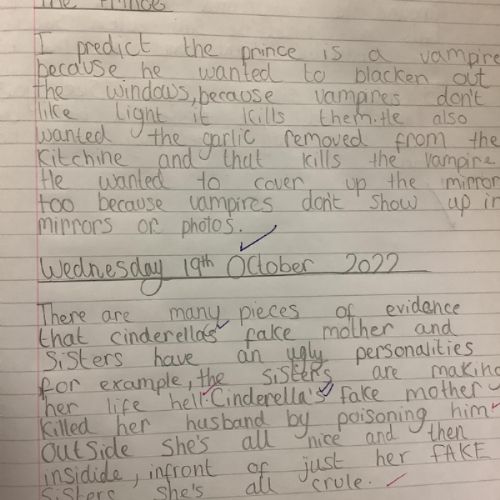 The Prince
I predict the prince is a vampire
because he wanted to blacken out
the windows, because vampires don't
like light it kills them. He also
wanted the garlic removed from the
kitchine and that kills the vampire.
He wanted to cover up the mirror
too because vampires don't show up in
mirrors or photos.
Wednesday 19th October 2022
There are many pieces of evidence
that cinderella's fake mother and
Sisters have an ugly personalities
for example, the sisters are making
her life hell. Cinderella's fake mother
killed her husband by poisoning him.
Outside she's all nice and then
insidide, infront of just her FAKE
Sisters she's all crule.